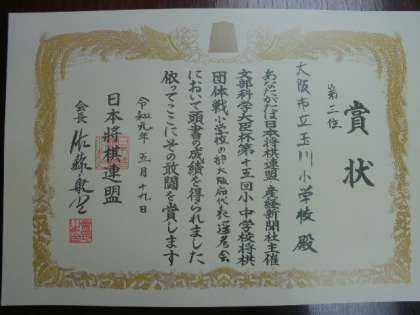 賞状
第三位
大阪市立玉川小学校殿
あなたがたは日本将棋連盟 産経新聞社主催
文部科学大臣杯第十五回小・中学校将棋
団体戦小学校の部大阪府代表選考会
において頭書の成績を得られました
依ってここにその敢闘を賞します
令和元年五月十九日
日本将棋連盟
会長